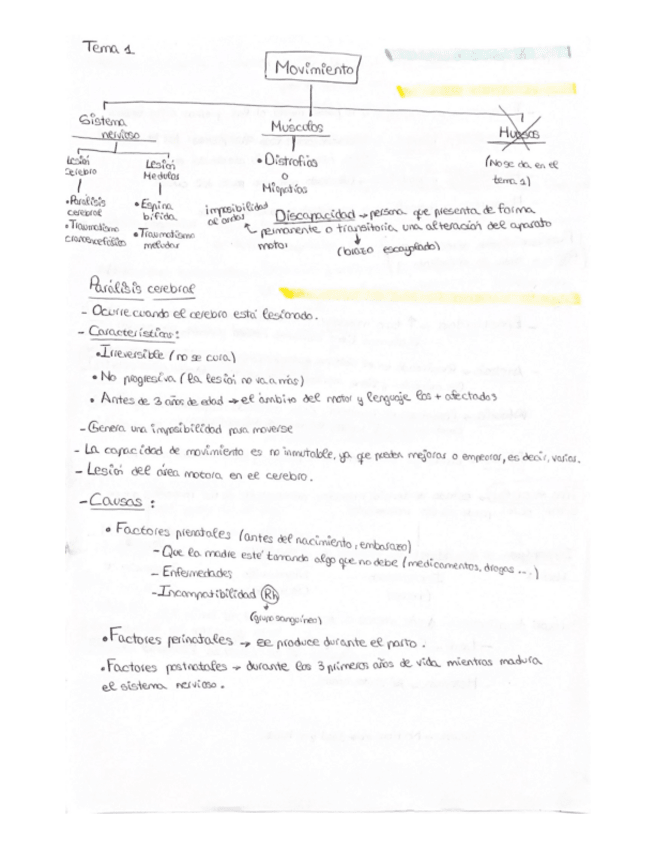 Tema 1
Movimiento
Sistema
nervioso
Músculos
Huesos
Lesión
cerebro
Lesión
Medular
• Distrofias
o
Miopatías
(No se da en el
tema 1)
• Parálisis
cerebral
• Traumatismo
craneoencefálico
• Espina
bífida
• Traumatismo
medular
imposibilidad
al andar
Discapacidad → persona que presenta de forma
permanente o transitoria una alteración del aparato
motor
(brazo escayolado)
Parálisis cerebral
- Ocurre cuando el cerebro está lesionado.
- Características:
• Irreversible (no se cura)
• No progresiva (la lesión no va a más)
• Antes de 3 años de edad → el ámbito del motor y lenguaje los + afectados
- Genera una imposibilidad para moverse
- La capacidad de movimiento es no inmutable, ya que pueden mejorar o empeorar, es decir, varias.
- Lesión del área motora en el cerebro.
- Causas:
• Factores prenatales (antes del nacimiento, embarazo)
- Que la madre esté tomando algo que no debe (medicamentos, drogas ...)
- Enfermedades
- Incompatibilidad Rh
(grupo sanguíneo)
• Factores perinatales → se produce durante el parto.
• Factores postnatales → durante los 3 primeros años de vida mientras madura
el sistema nervioso.